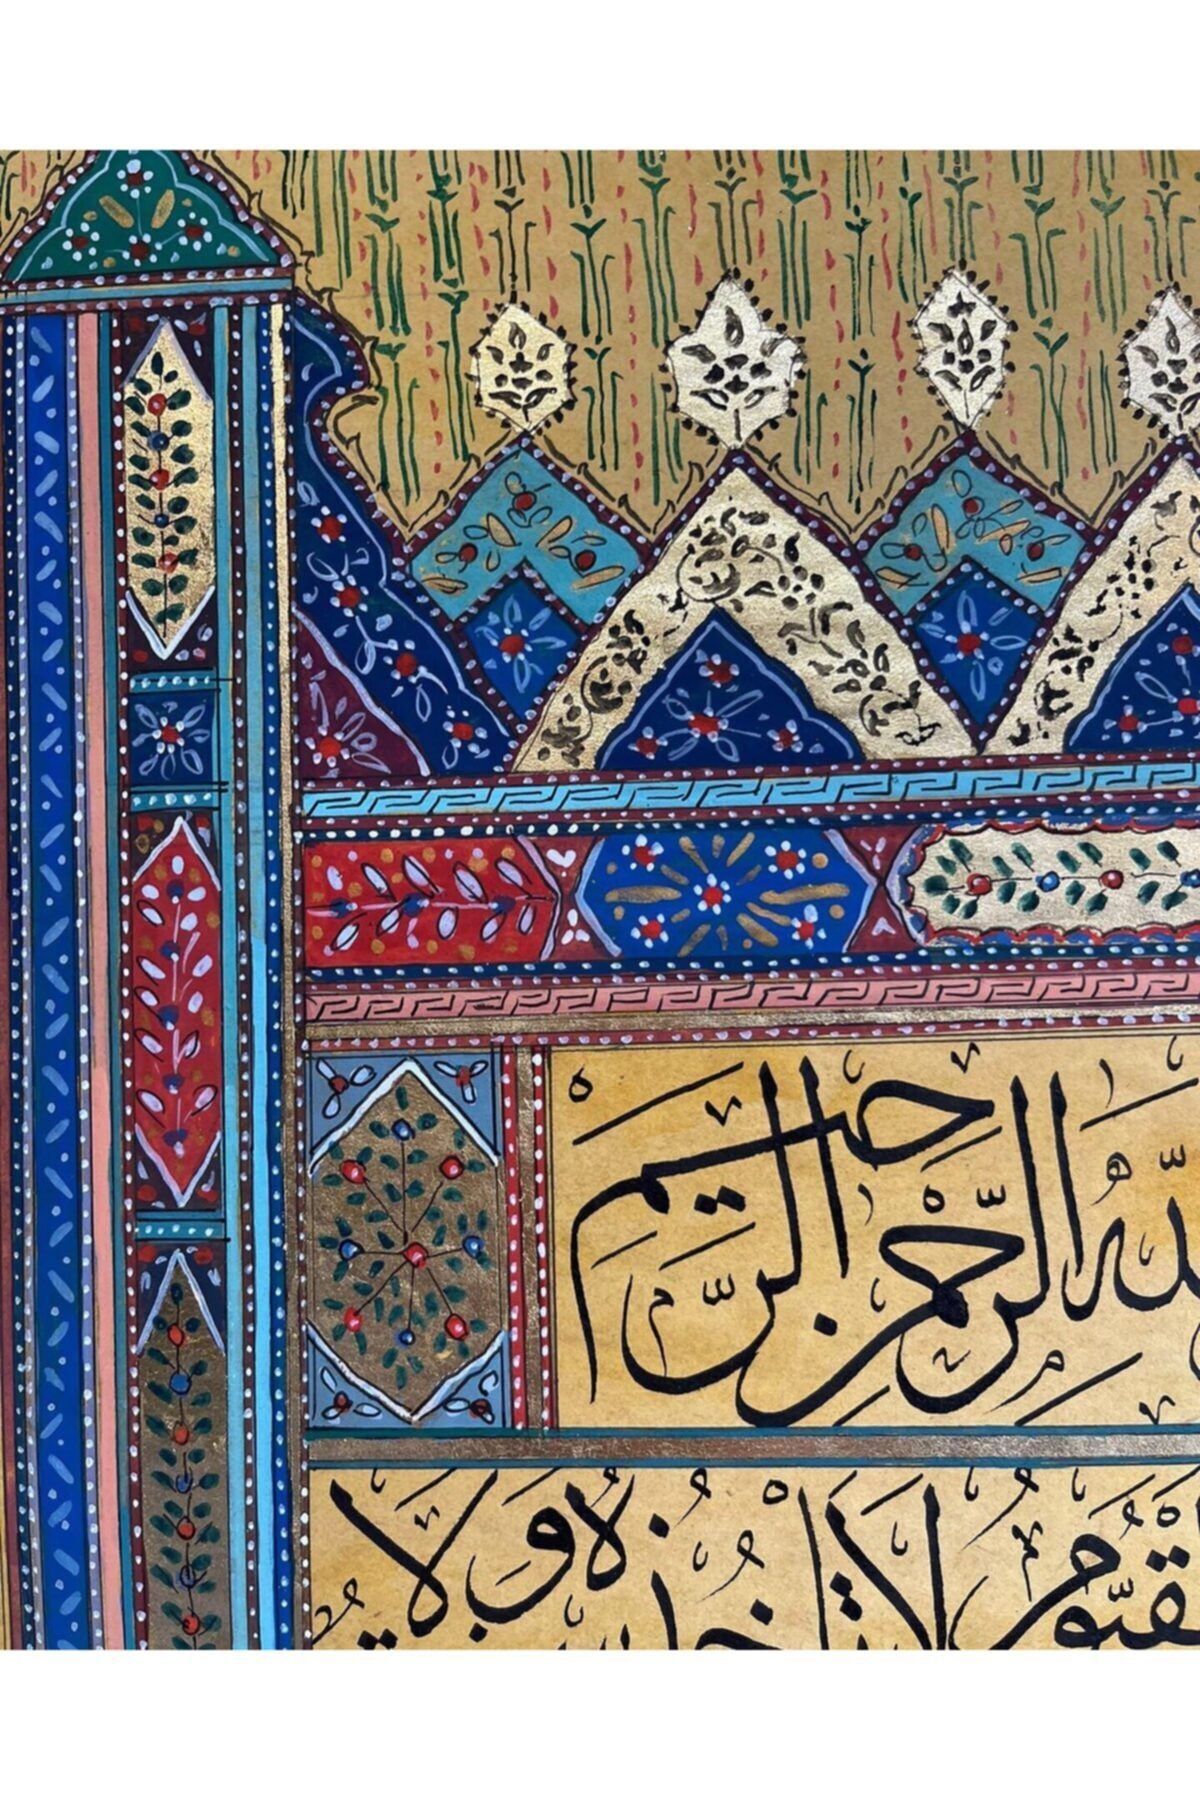 ـلَّهِ الرَّحْمٰنِ الرَّحِيمِ
ـقَيُّومُ لَا تَأْخُذُهُ وَلَا